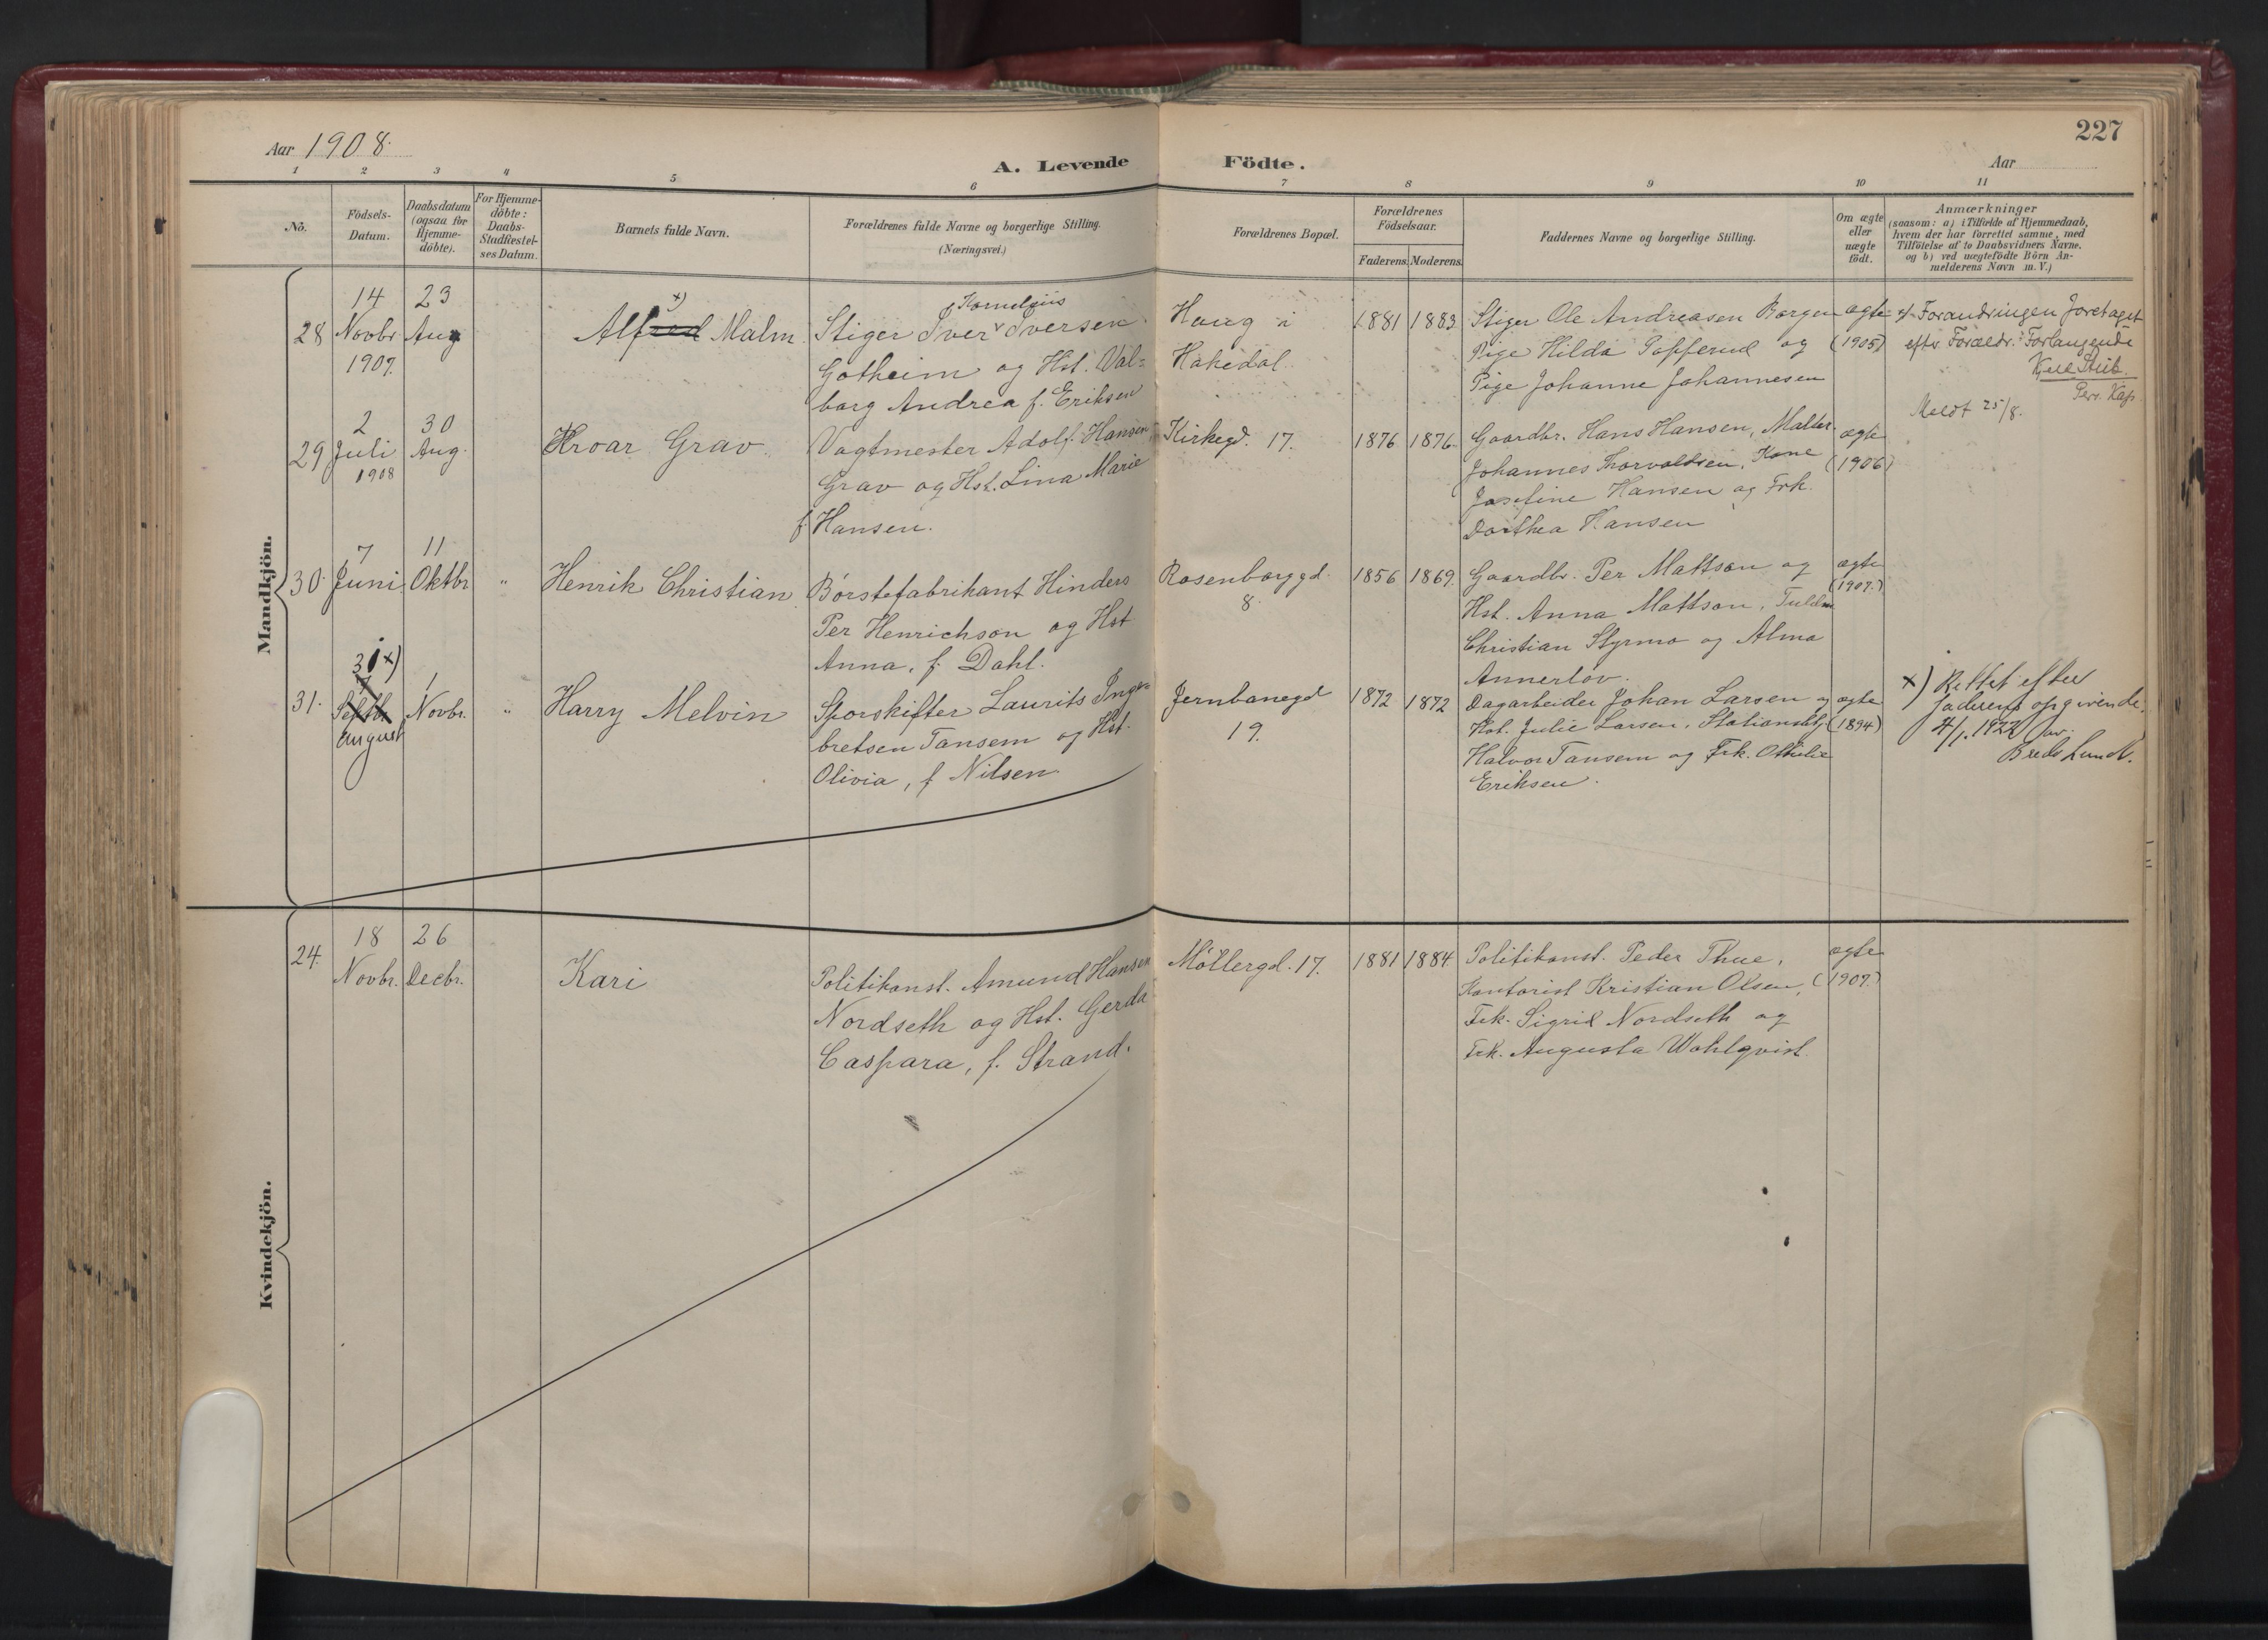 227
Aar 1908.
A. Levende Födte.
Aar
1 2 3 4 5 6 7 8 9 10 11
No.
Födsels-
Datum.
Daabsdatum
(ogsaa for
Hjemme-
döbte).
For Hjemme-
döbte:
Daabs-
Stadfæstel-
ses Datum.
Barnets fulde Navn.
Forældrenes fulde Navne og borgerlige Stilling.
(Næringsvei.)
Forældrenes Bopæl.
Forældrenes
Födselsaar.
Faderens. Moderens.
Faddernes Navne og borgerlige Stilling.
Om ægte
eller
uægte
födt.
Anmærkninger
(saasom: a) i Tilfælde af Hjemmedaab,
hvem der har forrettet samme, med
Tilföielse af to Daabsvidners Navne.
og b) ved uægtefödte Börn An-
melderens Navn m. V.)
Mandkjön.
28
14
Novbr
1907.
23
Aug
x)
Alfred Malm
Kornelius
Stiger Iver Iversen
Gotheim og Hst. Val=
borg Andrea f. Eriksen
Haug i
Hakedal
1881 1883
Stiger Ole Andreasen Borgen
Pige Hilda Tofferud og
Pige Johanne Johannesen
ægte
(1905)
x) Forandringen foretaget
efter Forældr. Forlangende
Kjell Stub.
Pers. Kap.
Meldt 25/8.
29
2
Juli
1908
30
Aug.
Hroar Grav.
Vagtmester Adolf Hansen
Grav og Hst. Lina Marie
f. Hansen.
Kirkegd. 17.
1876 1876
Gaardbr. Hans Hansen, Maler
Johannes Thorvaldsen, Kone
Josefine Hansen og Frk.
Dorthea Hansen
ægte
(1906)
30.
7
Juni
11
Oktbr
"
Henrik Christian
Börstefabrikant Hinders
Per Henrichson og Hst
Anna, f. Dahl.
Rosenborggd.
8.
1856 1869.
Gaardbr. Per Mattson og
Hst. Anna Mattson, Tuldm
Christian Styrmo og Alma
Annerlöv.
ægte
(1907.)
31.
31 x)
7
Septbr
August
1
Novbr.
"
Harry Melvin
Sporskifter Laurits Inge=
bretsen Tansem og Hst.
Olivia, f Nilsen
Jernbanegd
19.
1872 1872
Dagarbeider Johan Larsen og
Hst. Julie Larsen, Stationsbtj.
Halvor Tansem og Frk. Othilie
Eriksen.
ægte
(1894)
x) Rettet efter
faderens opgivende.
4/1. 1922 av.
Breds Lund.
Kvindekjön.
24.
18
Novbr.
26
Decbr.
Kari
Politikonst. Amund Hansen
Nordseth og Hst. Gerda
Caspara, f. Strand.
Möllergd. 17.
1881 1884
Politikonst. Peder Thue,
Kontorist Kristian Olsen,
Frk. Sigrid Nordseth og
Frk. Augusta Wohlqvist.
ægte
(1907.)